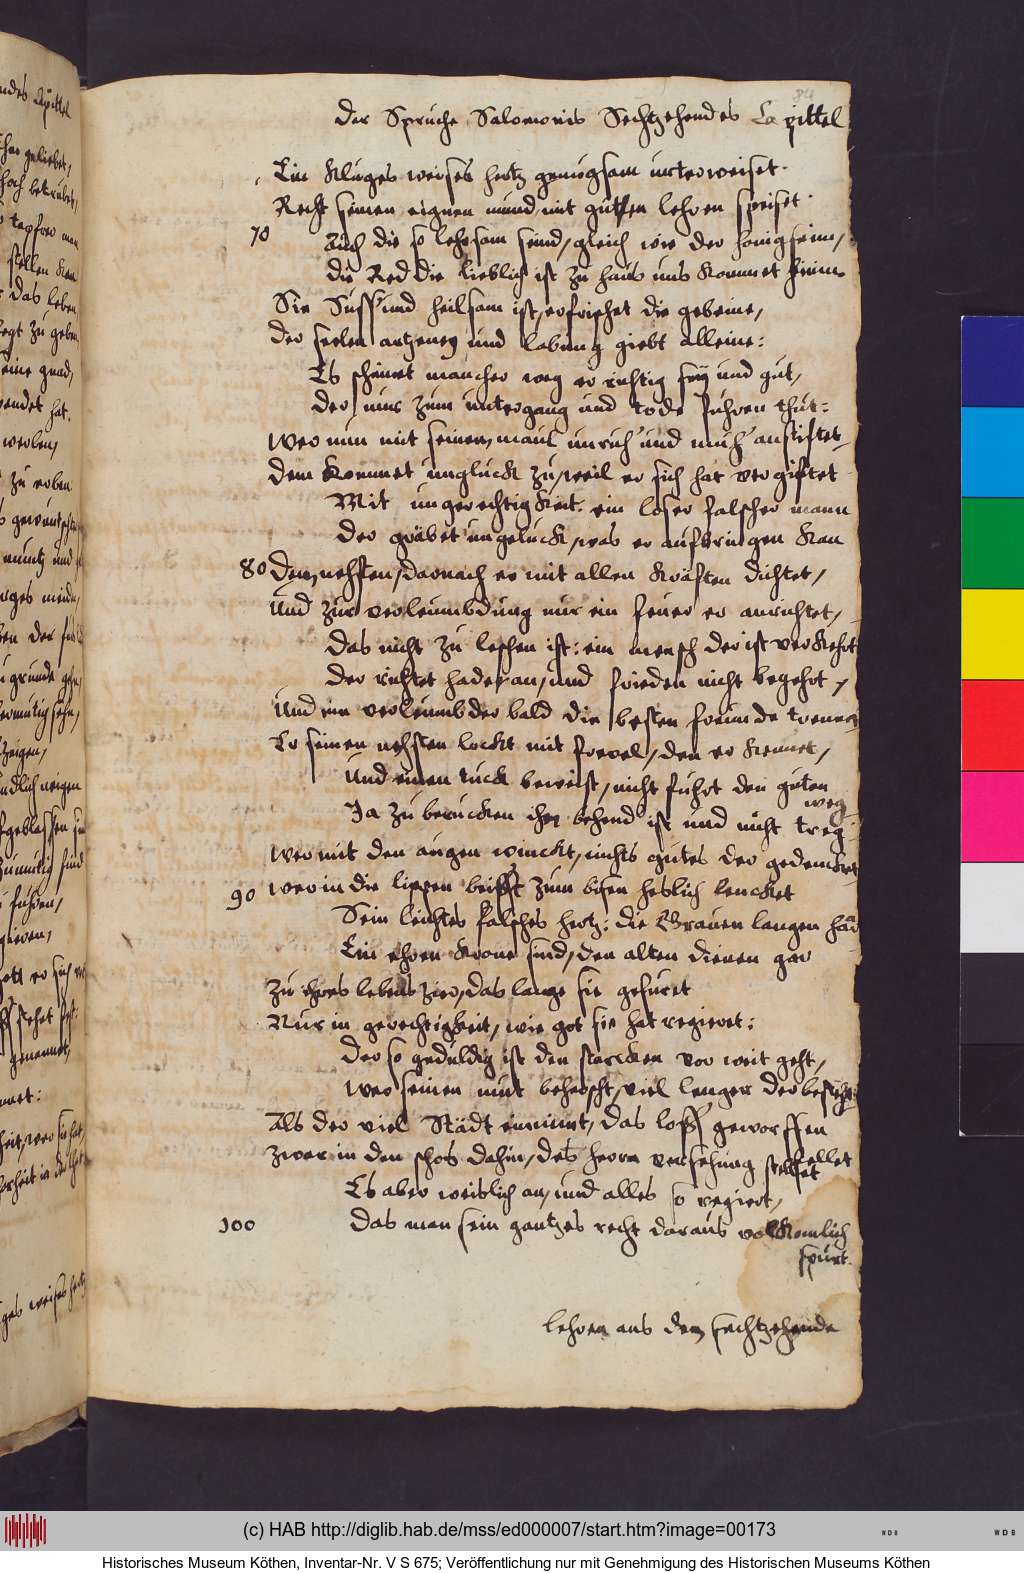 84
Der Spruche Salomonis Sechtzehendes Capittel
Ein Kluges weises hertz genugsam unterweiset.
Recht seinen eignen mund mit gutten lehren speiset.
70 Auch die so lehrsam seind, gleich wie der honigseim,
die Red die lieblich ist zu haus uns kommet heim
Sie Suss' und heilsam ist, erfrischet die gebeine,
der seelen artzeney und labung giebt alleine:
Es scheinet mancher weg er richtig sey und gut,
der nur zum untergang und tode fuhren thut:
Wer nun mit seinem maul unruh' und muh' anstiftet,
dem kommet ungluck zu, weil er sich hat vergiftet
Mit ungerechtigkeit. ein loser falscher mann
der gräbet ungeluck, was er aufbringen kan
80 Dem nehsten, darnach er mit allen kräften dichtet,
Und zur verleumbdung nur ein feuer er anrichtet,
das nicht zu leschen ist: ein mensch der ist verkehrt
der richtet hader an, und frieden nicht begehrt,
Und ein verleumbder bald die besten freunde trennet
Er seinen nehsten lockt mit frevel, den er kennet,
Und einen tuck beweist, nicht fuhrt den guten
weg
Ja zu berucken ihn behend ist und nicht treg
Wer mit den augen winckt, nichts gutes der gedencket
90 wer in die lippen beisst zum bösen heslich lencket
Sein leichtes falsches hertz: die Grauen langen har
Ein ehren krone sind, den alten dienen gar
Zu ihres lebens zier, das lange sie gefuret
Nur in gerechtigkeit, wie got sie hat regieret:
Der so geduldig ist den starcken vor weit geht,
Wer seinen mut beherscht, viel lenger der besteht
Als der viel Städt einnimt, das loss geworffen
Zwar in den schos dahin, des herrn versehung stellet
fellet
Es aber weislich an, und alles so regiert,
100 das man sein gantzes recht daraus volkomlich
spürt.
lehren aus dem sechtzehende
(c) HAB http://diglib.hab.de/mss/ed000007/start.htm?image=00173
WDB
WDB
Historisches Museum Köthen, Inventar-Nr. V S 675; Veröffentlichung nur mit Genehmigung des Historischen Museums Köthen